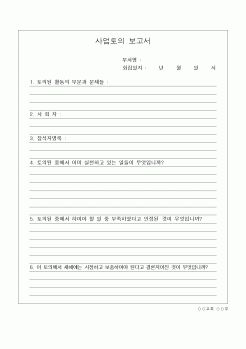 사업토의 보고서
부서명 :
회합일시 : 년 월 일 시
1. 토의된 활동의 부문과 문제들 :
2. 사 회 자 :
3. 참석자명록 :
4. 토의된 중에서 이미 실천하고 있는 일들이 무엇입니까?
5. 토의된 중에서 하여야 할 일 중 부족하였다고 인정된 것이 무엇입니까?
6. 이 토의에서 새해에는 시정하고 보충하여야 된다고 결론지어진 것이 무엇입니까?
○○교회 ○○부